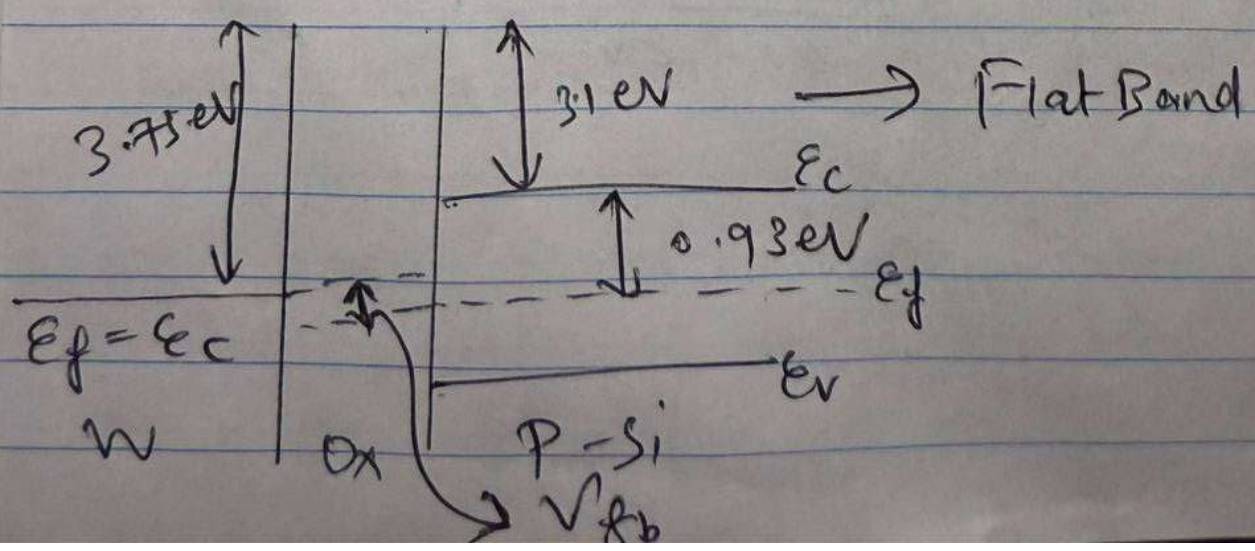 3.75 eV
3.1 eV → Flat Band
Ec
0.93 eV
Ef
Ef = Ec
Ev
W
Ox
P-Si
Vfb